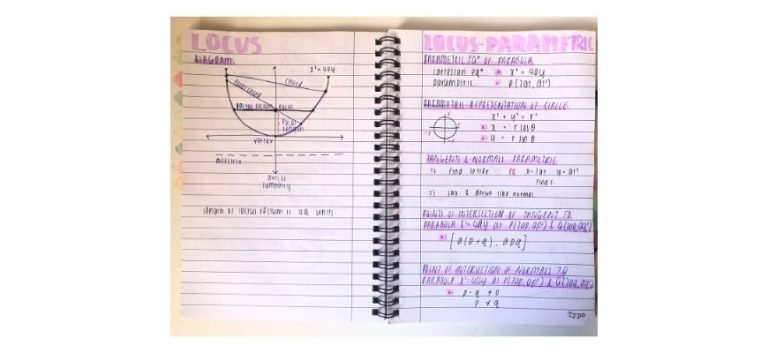 LOCUS
DIAGRAM
x² = 4ay
CHORD
FOCAL CHORD
LATUS RECTUM
FOCUS
FOCAL LENGTH
VERTEX
DIRECTRIX
AXIS OF SYMMETRY
LENGTH OF LATUS RECTUM IS 4a UNITS
LOCUS-PARAMETRIC
PARAMETRIC EQⁿ OF PARABOLA
CARTESIAN EQⁿ x² = 4ay
PARAMETRIC P(2at, at²)
PARAMETRIC REPRESENTATION OF CIRCLE
x² + y² = r²
x = r cos θ
y = r sin θ
TANGENTS & NORMALS PARAMETRIC
x = 2at y = at²
FIND t
POINTS OF INTERSECTION OF TANGENT TO
PARABOLA x² = 4ay AT P(2ap, ap²) & Q(2aq, aq²)
[a(p+q), apq]
POINT OF INTERSECTION OF NORMALS TO
PARABOLA x² = 4ay AT P(2ap, ap²) & Q(2aq, aq²)
p - q ≠ 0
p ≠ q
Typo